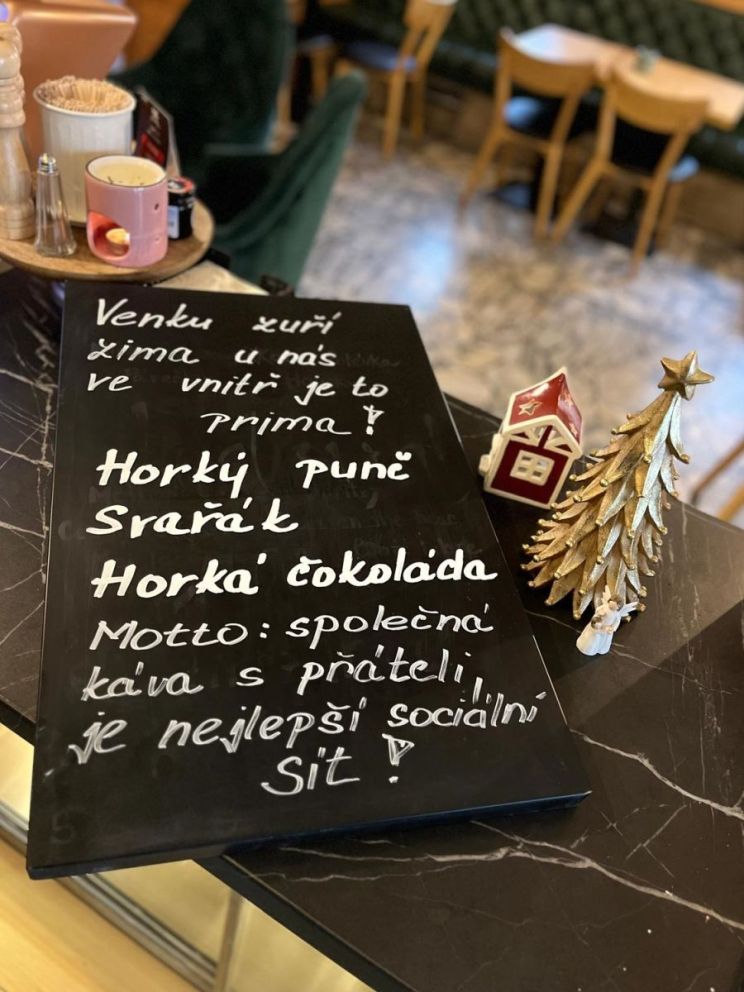 Venku zuří
zima u nás
ve vnitř je to
prima!
Horký punč
Svařák
Horká čokoláda
Motto: společná
káva s přáteli,
je nejlepší sociální
Sít!